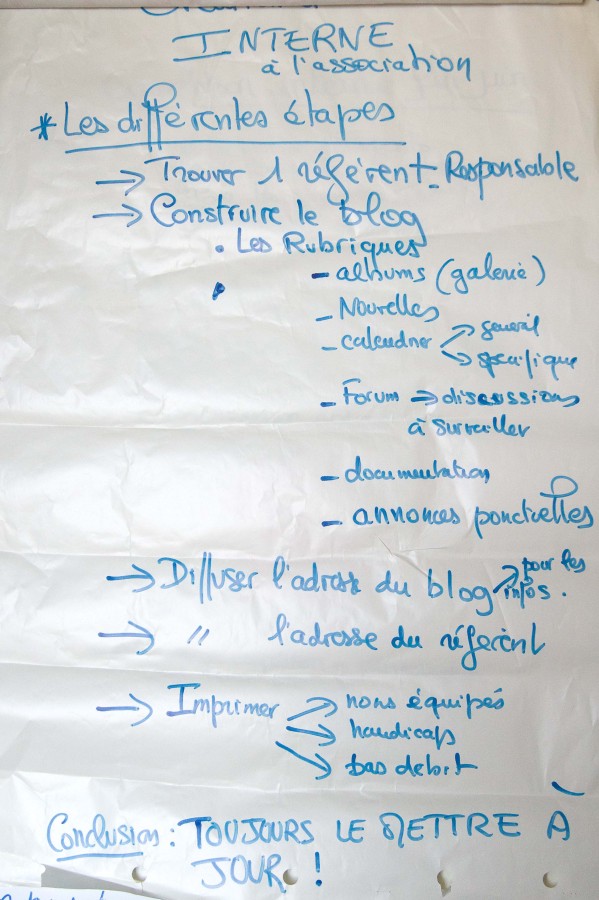 INTERNE
à l'association
* Les différentes étapes
→ Trouver 1 référent - Responsable
→ Construire le blog
• Les Rubriques
- albums (galerie)
- Nouvelles
- calendrier → général
→ spécifique
- Forum → discussions
à surveiller
- documentation
- annonces ponctuelles
→ Diffuser l'adresse du blog → pour les
infos.
→ " l'adresse du référent
→ Imprimer → nons équipés
→ handicaps
→ bas debit
Conclusion : TOUJOURS LE METTRE A
JOUR !